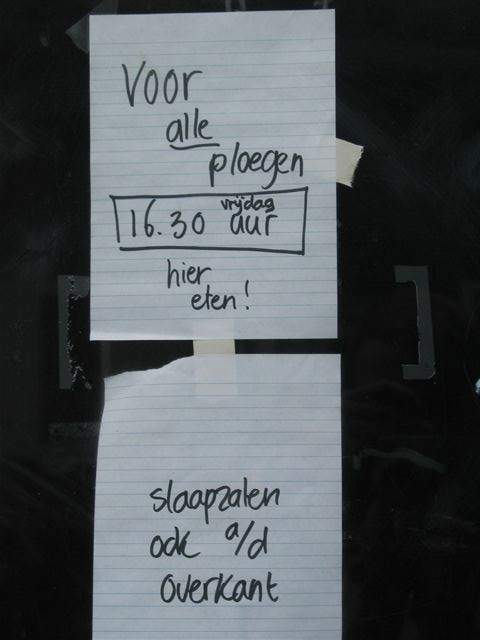 Voor
alle
ploegen
vrijdag
16.30 uur
hier
eten!
slaapzalen
ook a/d
overkant